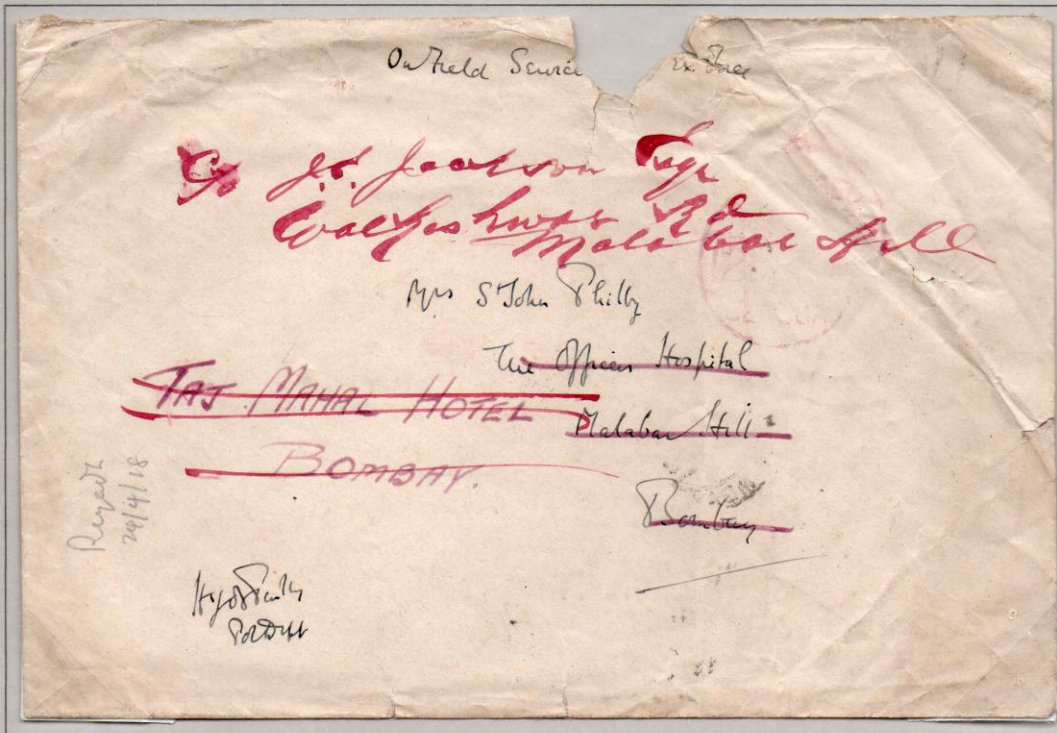 On Field Service
Ex Force
C/o J. S. Jackson Esqr
Walkeshwar Rd
Malabar Hill
Mrs St John Philby
The Officers Hospital
TAJ MAHAL HOTEL
Malabar Hill
BOMBAY.
Bombay
Riyadh
24/4/18
HStJBPhilby
Pol Dept